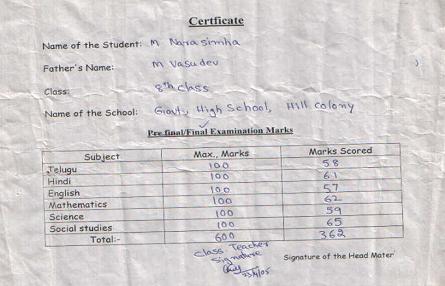 Certficate
Name of the Student: M Narasimha
Father's Name: M Vasudev
Class: 8th class
Name of the School: Govt., High School, Hill colony
Pre final/Final Examination Marks
Subject Max., Marks Marks Scored
Telugu 100 58
Hindi 100 61
English 100 57
Mathematics 100 62
Science 100 59
Social studies 100 65
Total:- 600 362
Class Teacher
Signature
Signature of the Head Mater